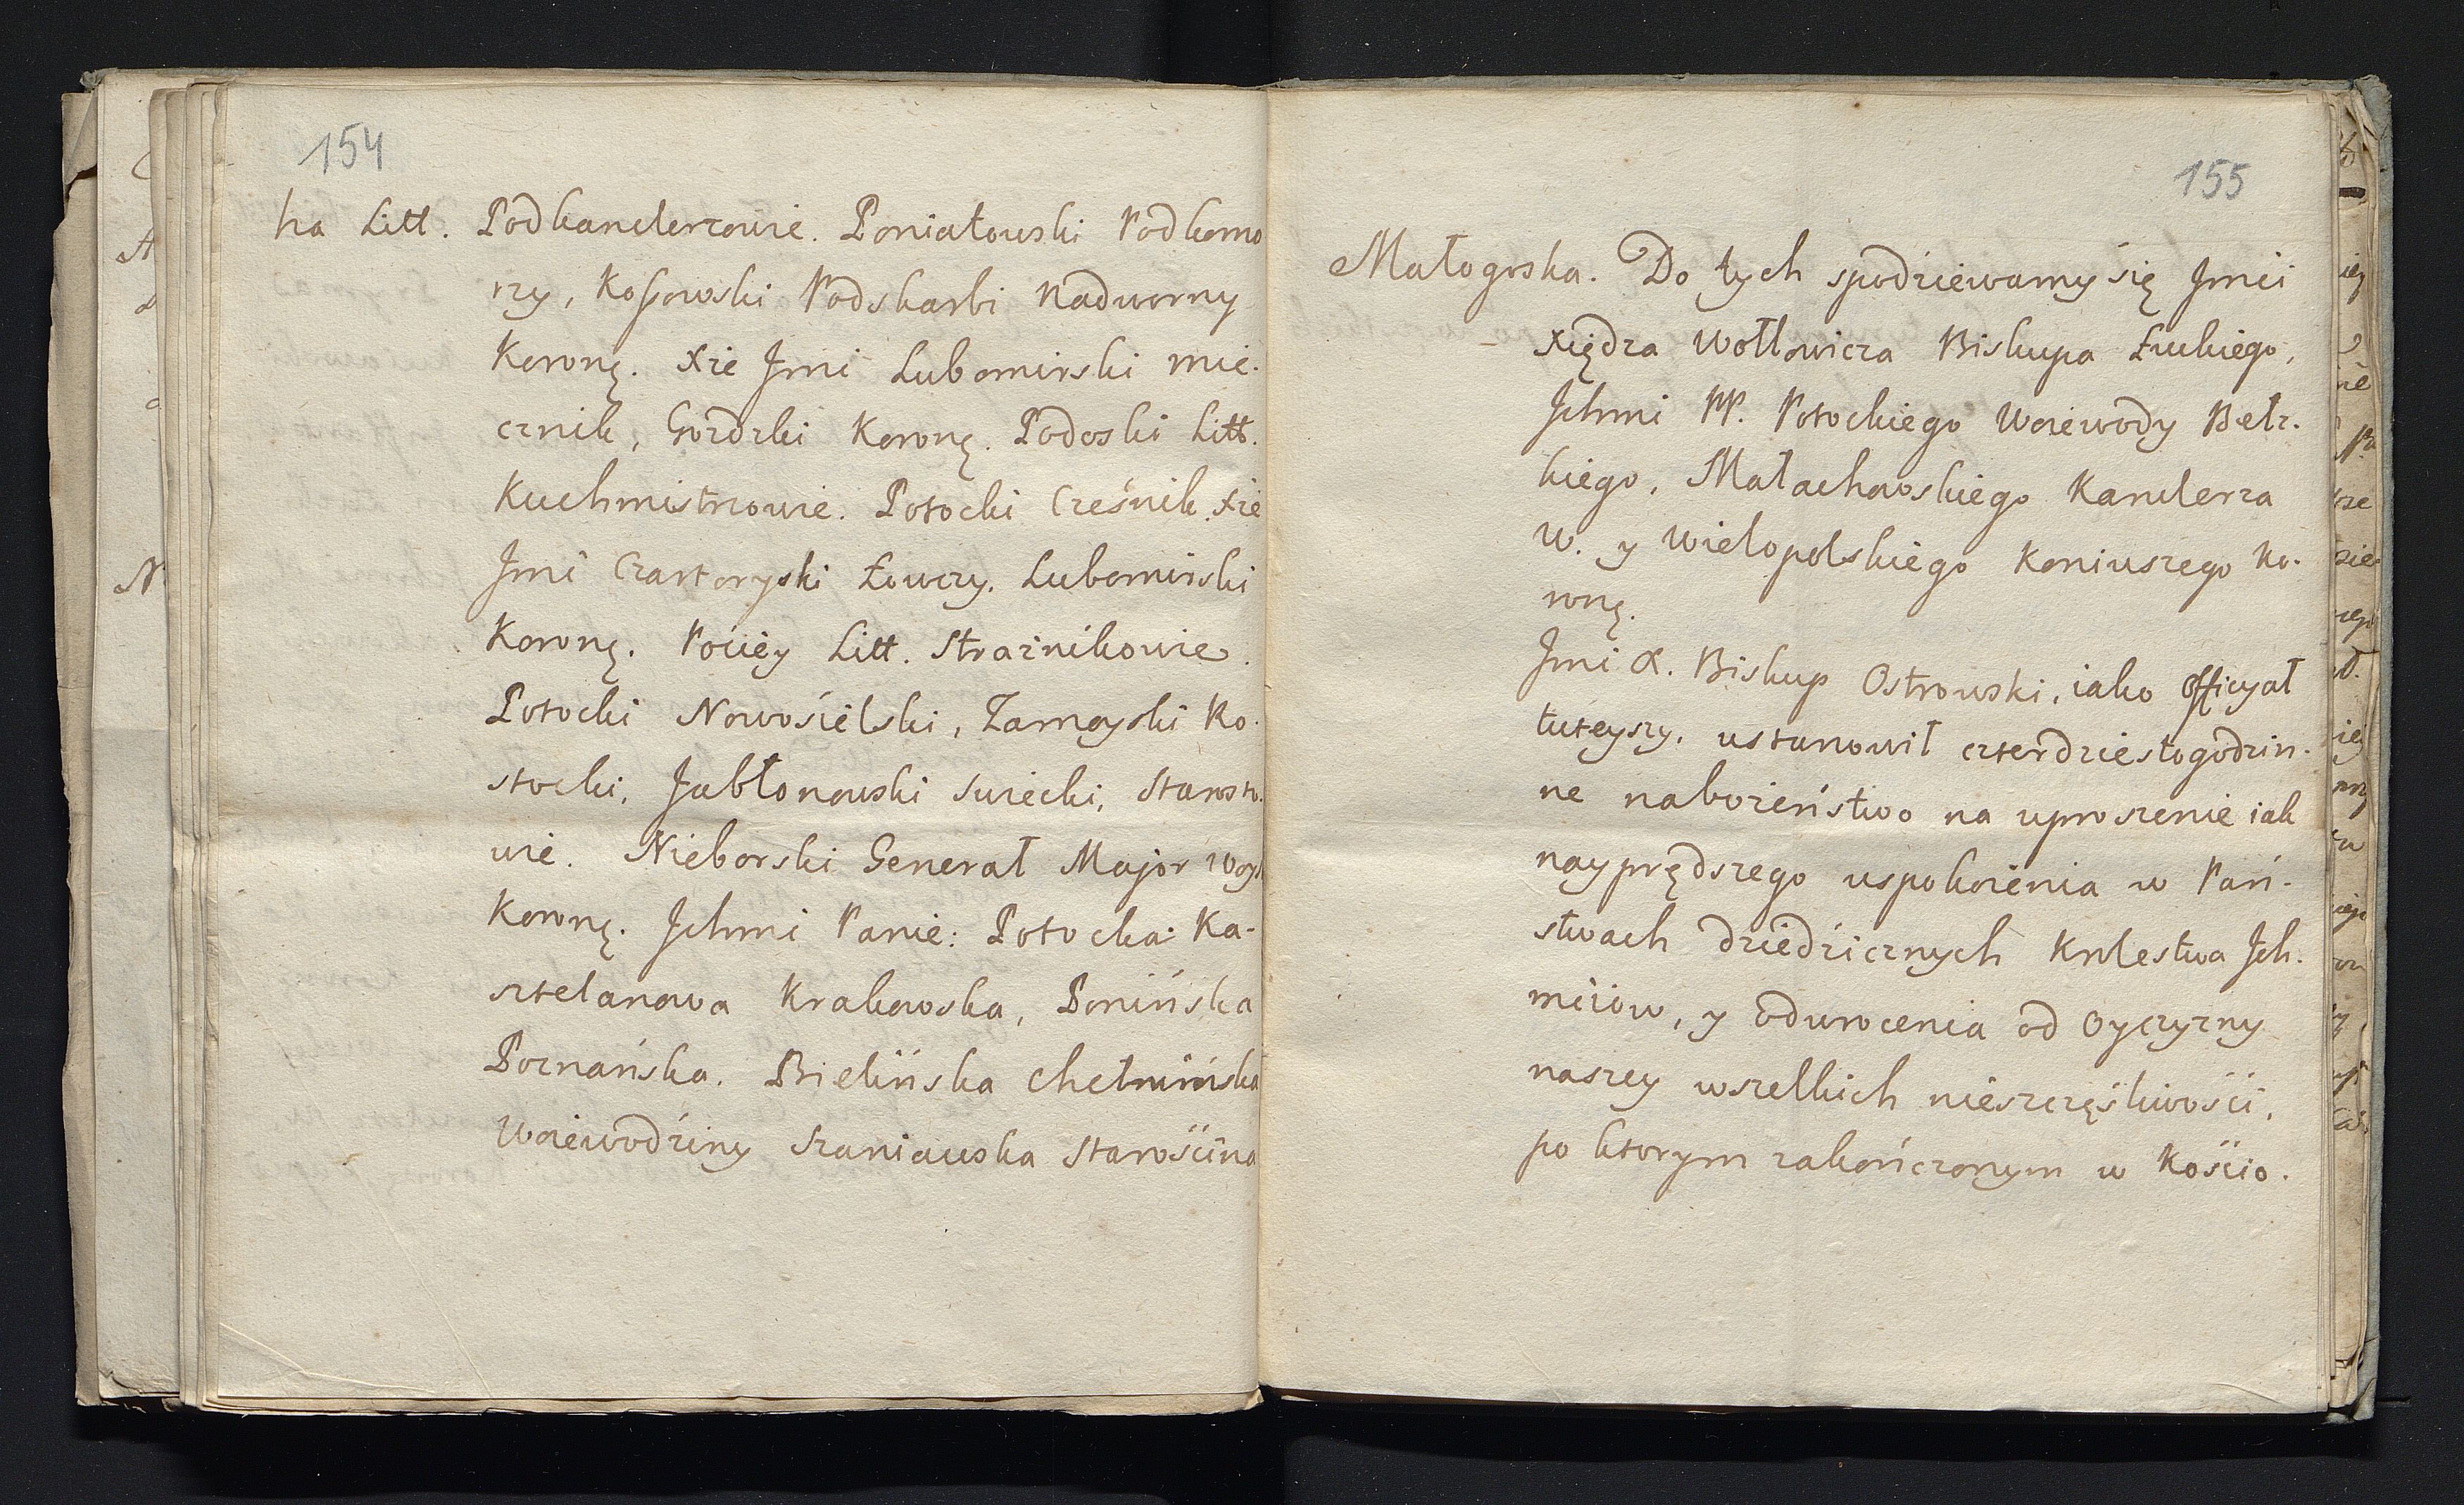 154
ha Litt. Podkanclerzowie. Poniatowski Podkomo
rzy, Kossowski Podskarbi Nadworny
Koronę. Xże Jmć Lubomirski mie.
cznik, Gozdzki Koronę. Podoski Litt.
Kuchmistrzowie. Potocki Cześnik. Xże
Jmć Czartoryski Łowczy. Lubomirski
Koronę. Pociey Litt. Strażnikowie.
Potocki Nowosielski, Zamoyski Ro.
stocki, Jabłonowski Swiecki, Starosto.
wie. Nieborski Generał Major Woys
Koronę. Jchmć Panie: Potocka Ka-
sztelanowa Krakowska, Ponińska
Poznańska. Bielińska Chełmińska
Woiewodziny Szaniawska Starościna
155
Małogoska. Do tych spodziewamy się Jmći
Xiędza Wołłowicza Biskupa Łuckiego,
Jchmć PP. Potockiego Woiewody Bełz.
kiego, Małachowskiego Kanclerza
W. y Wielopolskiego Koniuszego Ko.
ronę.
Jmć X. Biskup Ostrowski, iako Officyał
tuteyszy, ustanowił czterdziestogodzin.
ne nabożeństwo na uproszenie iak
nayprędszego uspokoienia w Pań.
stwach dziedzicznych Krolestwa Jch.
mciow, y odwrocenia od Oyczyzny
naszey wszelkich nieszczęśliwości,
po ktorym zakończonym w Kościo.